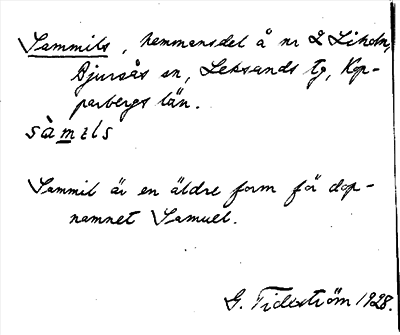 Sammils, hemmansdel å nr 2 Liholn,
Bjursås sn, Leksands tg, Kop-
parbergs län.
sàmils
Sammil är en äldre form för dop-
namnet Samuel.
G. Tideström 1928.